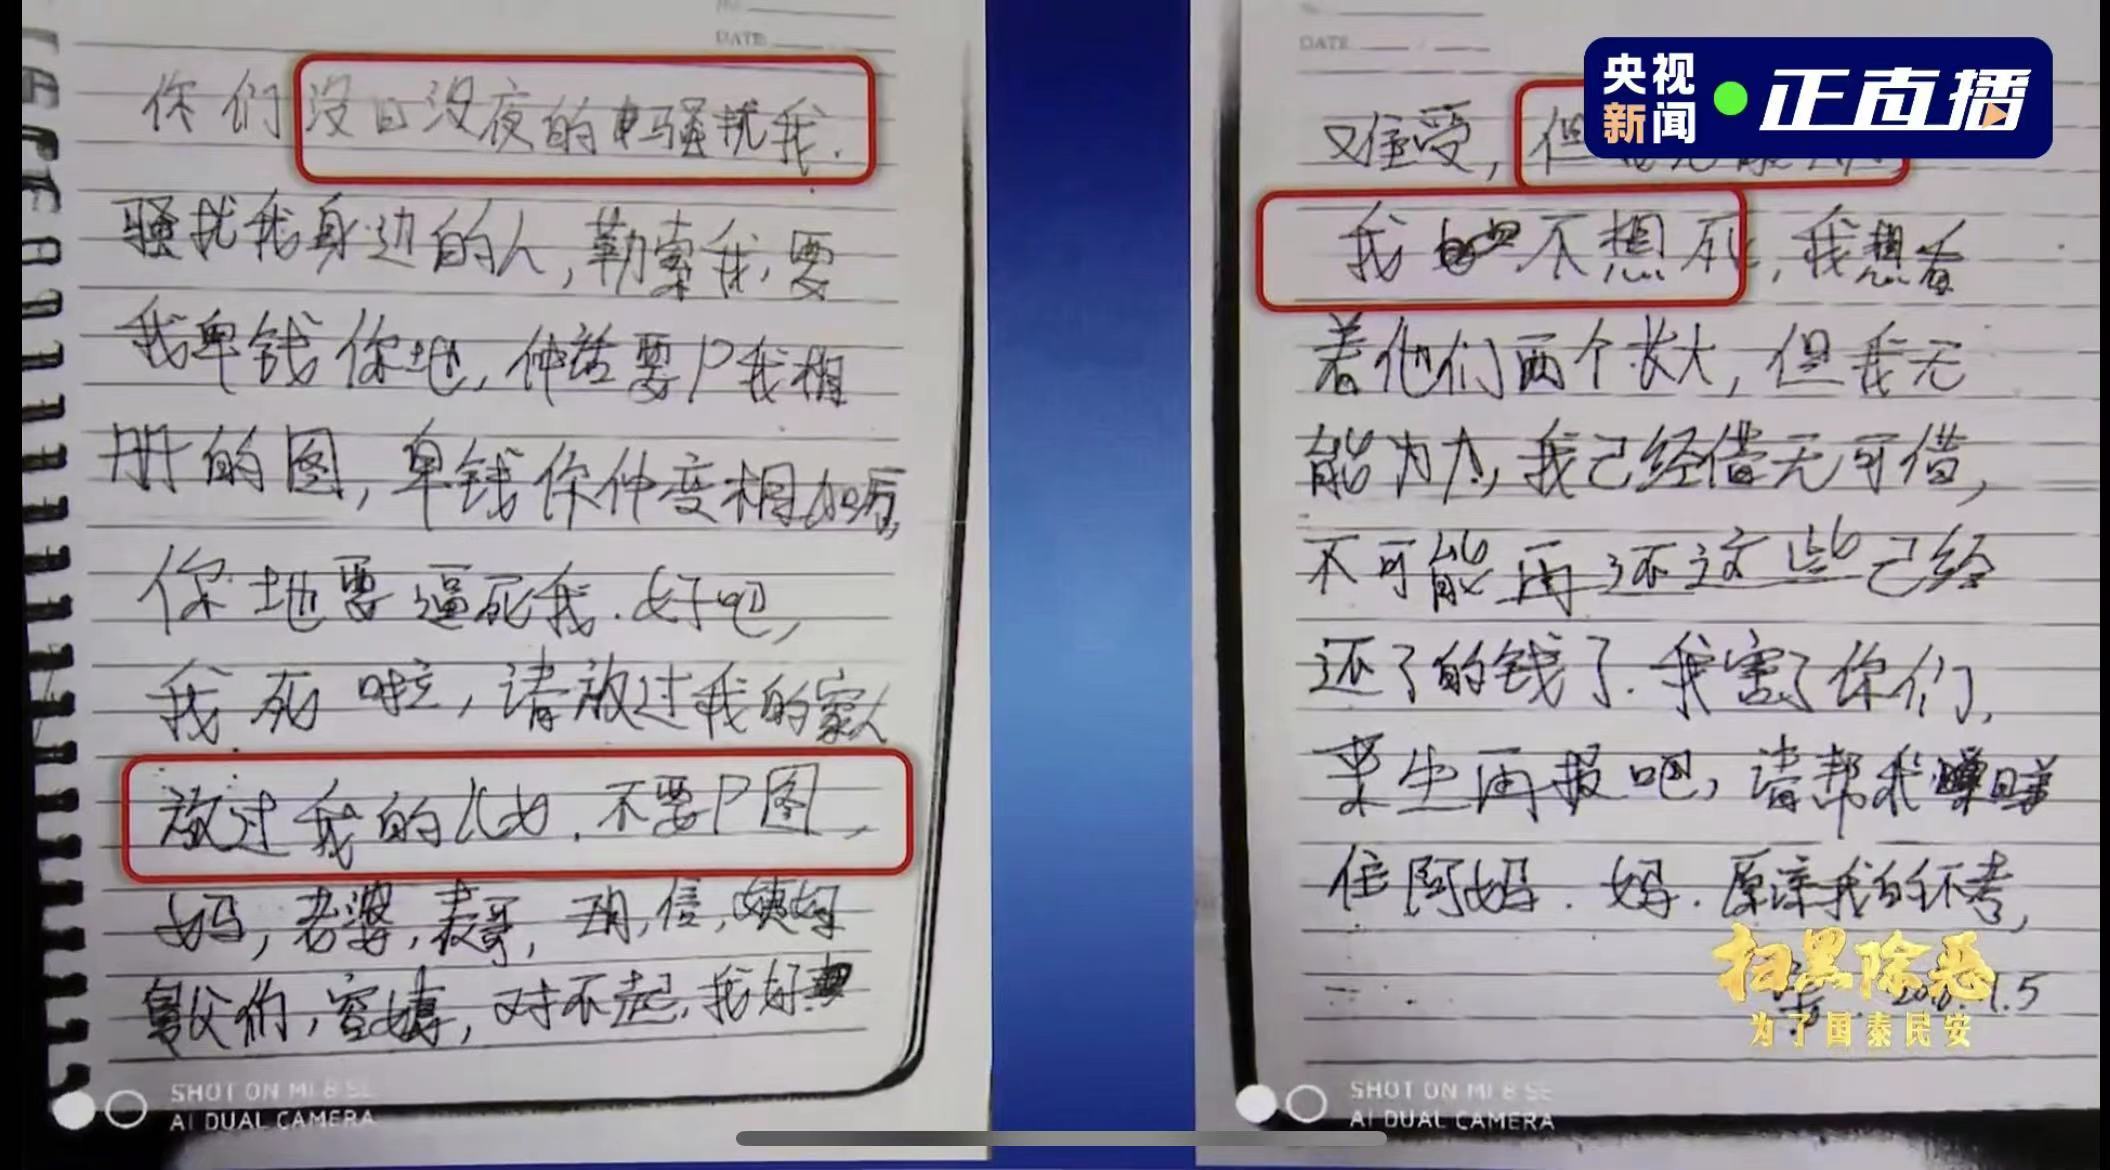 DATE
你们没日没夜的骚扰我.
骚扰我身边的人,勒索我,要
我卑钱你地,仲话要P我相
册的图,卑钱你仲变相加厉,
你地要逼死我.好吧,
我死啦,请放过我的家人
放过我的儿女.不要P图,
妈,老婆,表哥,玥,信,姨妈
舅父们,容姨,对不起,我好
SHOT ON MI 8 SE
AI DUAL CAMERA
DATE
央视新闻 正直播
又难受,但
我不想死,我想看
着他们两个长大,但我无
能为力,我己经借无可借,
不可能再还这些己经
还了的钱了.我害了你们,
来生再报吧,请帮我
住阿妈.妈.原谅我的不孝,
1.5
扫黑除恶
为了国泰民安
SHOT ON MI 8 SE
AI DUAL CAMERA